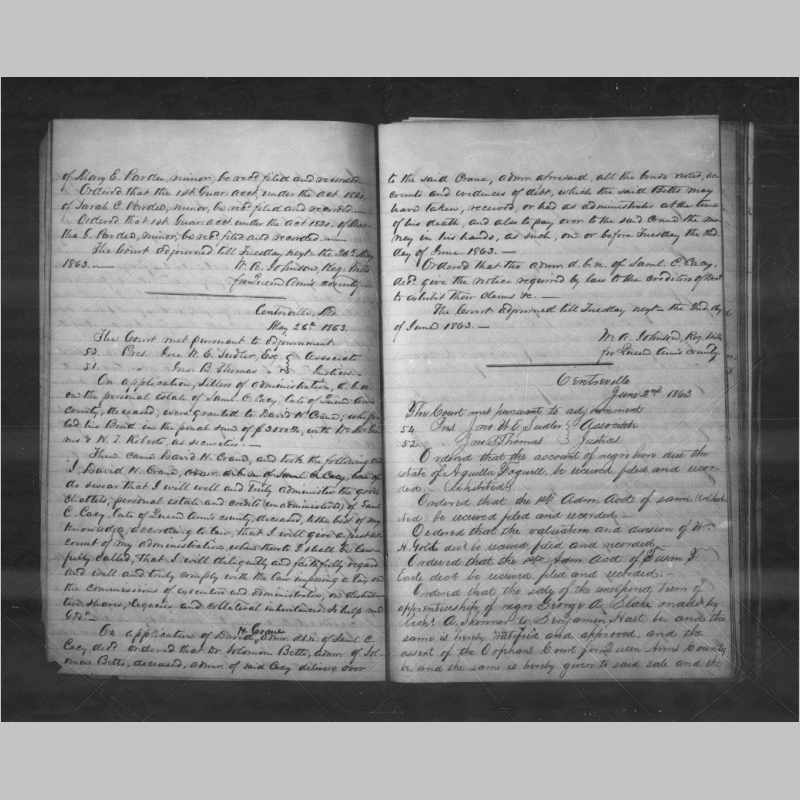 of Mary E. Pardee, minor, be recd. filed and recorded
Ordered that the 1st Guar. acct. under the act 1831.
of Sarah C. Pardee, minor, be recd. filed and recorded —
Ordered that 1st Guar. act under the act 1831. of
tha E. Pardee, minor, be recd. filed and recorded. —
The Court adjourned till Tuesday next the 26th May
1863. —
W. A. Johnson, Reg. Wills
for Queen Ann's county —
Centreville, Md.
May 26th 1863.
The Court met pursuant to adjournment
53. Pres. Hon. W. C. Sudler, Esq. & Associate
51 " Jno. B. Thomas " Justices
On application, letters of administration, d. b. n.
on the personal estate of Saml. C. Cacy, late of Queen Anns
county, deceased, were granted to David H. Crane; who
ted his Bond in the penal sum of $3000, with
& N. T. Roberts as securities. —
Then came David H. Crane, and took the following
I, David H. Crane, admr. d. b. n. of Saml. C. Cacy,
do swear that I will well and truly administer the goods
chattels, personal estate and credits (un administered) of Saml
C. Cacy, late of Queen Anns county, deceased, to the best of my
knowledge, according to law, that I will give a just ac
count of my administration, when thereto I shall be law
fully called, that I will diligently and faithfully regard
and well and truly comply with the law imposing a tax on
the commissions of executors and administrators, on distribu
tive shares, legacies and collateral inheritances. So help me
God. —
On application of David H. Crane, admr. d. b. n. of Saml. C.
Cacy decd. ordered that Dr. Solomon Betts, admr. of
Betts, deceased, admr. of said Cacy deliver over
to the said Crane, admr. aforesaid, all the bonds notes, ac
counts and evidences of debt, which the said Betts may
have taken, received, or had as administrator at the time
of his death, and also to pay over to the said Crane the mo
ney in his hands, as such, on or before Tuesday the 2nd
day of June 1863. —
Ordered that the admr. d. b. n. of Saml. C. Cacy,
decd. give the notice required by law to the creditors of decd
to exhibit their claims &c. —
The Court adjourned till Tuesday next the 2nd day
of June 1863. —
W. A. Johnson, Reg. Wills
for Queen Ann's county
Centreville
June 2nd 1863
The Court met pursuant to adjournment
54 Pres. Hon W. C. Sudler } Associate
52 Jno B Thomas } Justices
Ordered that the account of negro hire due the
estate of Aquilla be received filed and recor
ded (exhibited)
Ordered that the 1st Admn Acct of same (exhib
ited) be received filed and recorded —
Ordered that the valuation and division of Wm
H. Gold decd be received filed and recorded —
Ordered that the Admn Acct of
Earle decd be received filed and recorded. —
Ordered that the sale of the unexpired term of
apprenticeship of negro George A. Blake made by
A. Skinner to Benjamin Hast be and the
same is hereby ratified and approved and the
assent of the Orphans Court for Queen Anns County
be and the same is hereby given to said sale and the